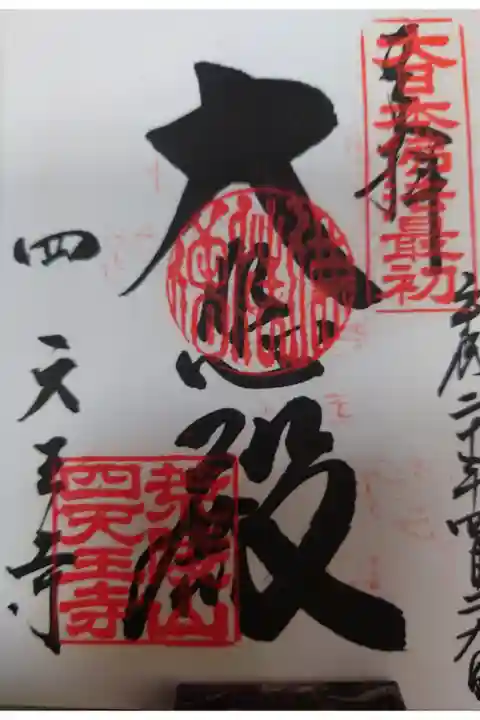 奉拝
大日本佛法最初
平成二十年四月
大悲殿
荒陵山
四天王寺
四天王寺